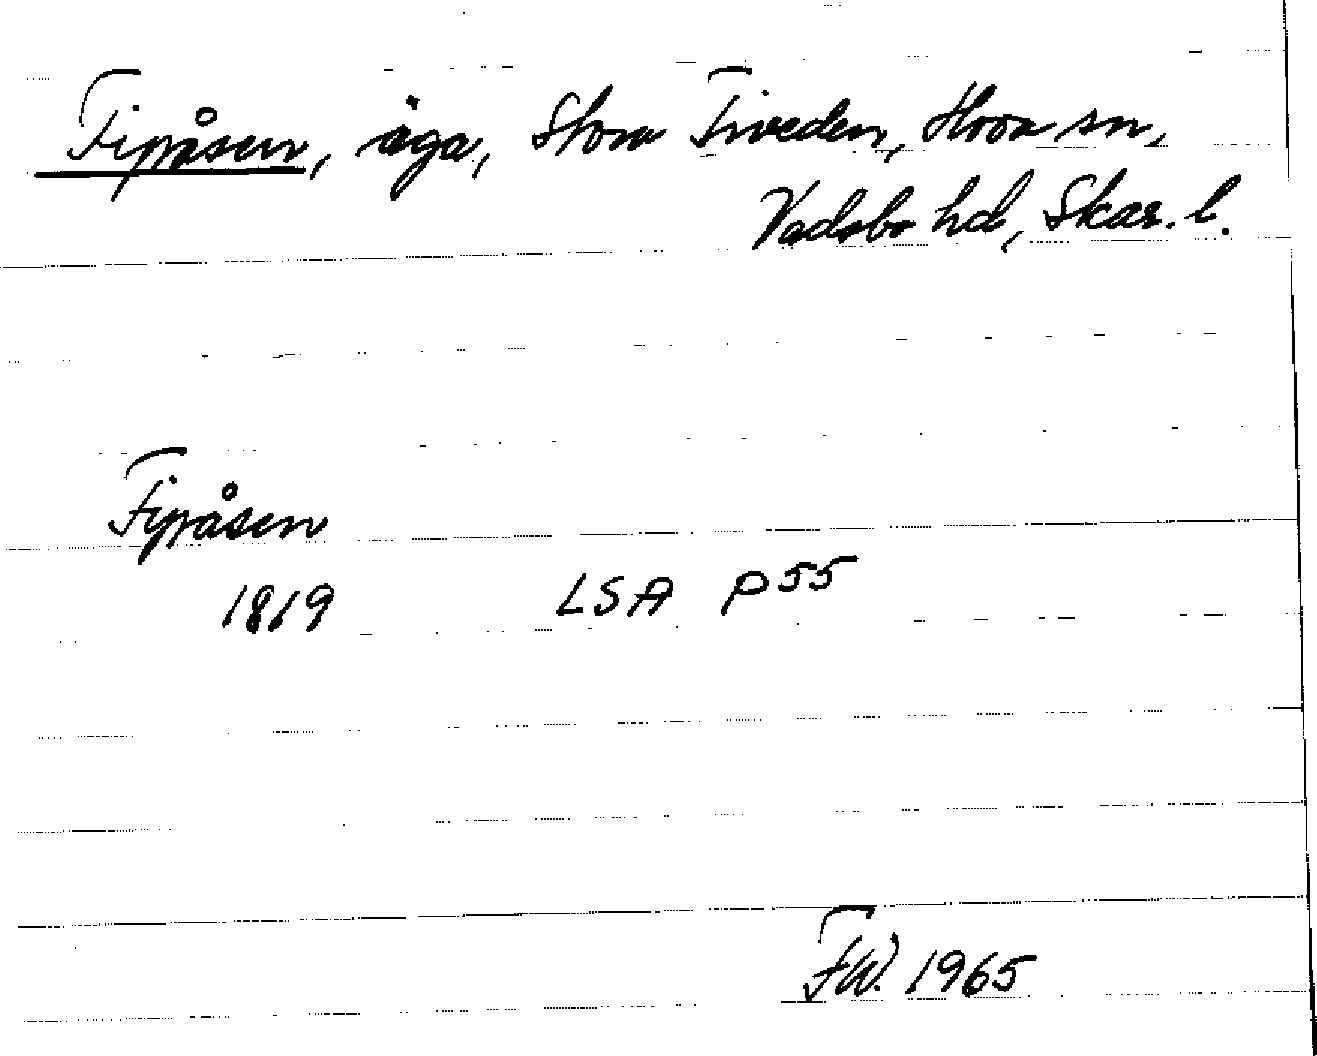 Fipåsen, äga, Stora Tiveden, Hova sn,
Vadsbo hd, Skar. l.
Fipåsen
1819 LSA P55
F.W. 1965